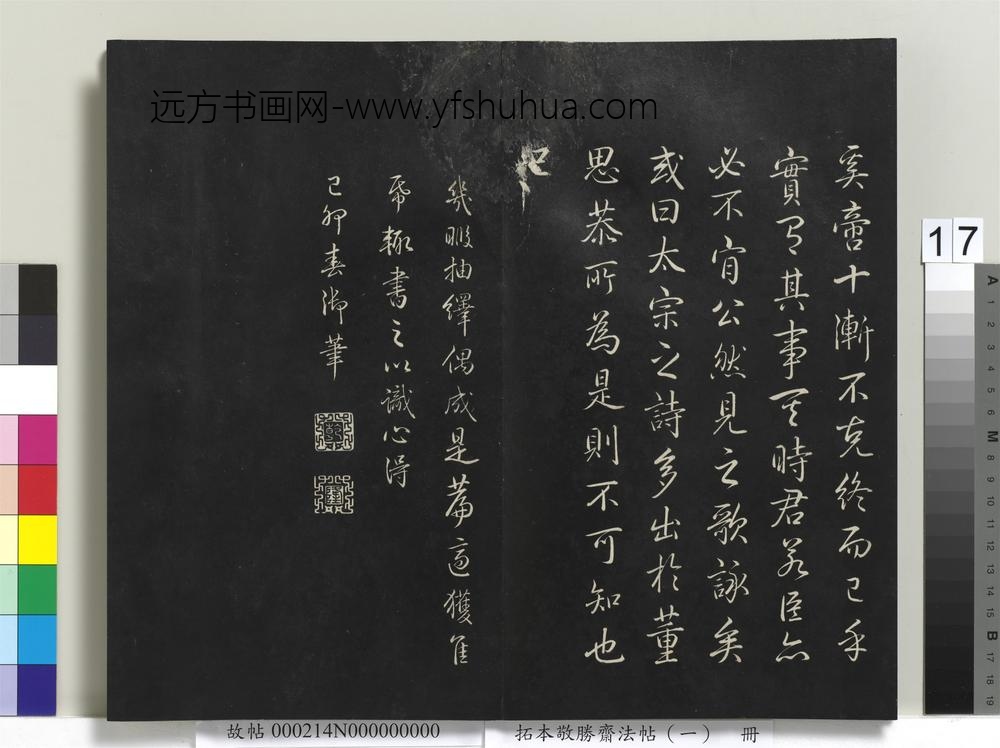 远方书画网-www.yfshuhua.com
奚啻十漸不克終而已乎
實有其事其時君若臣亦
必不肯公然見之歌詠矣
或曰太宗之詩多出於董
思恭所為是則不可知也
幾暇抽繹偶成是篇適獲佳
帋輒書之以識心得
己卯春御筆
17
A 1 2 3 4 5 6 M 8 9 10 11 12 13 14 15 B 17 18 19
故帖 000214N000000000
拓本敬勝齋法帖（一） 冊